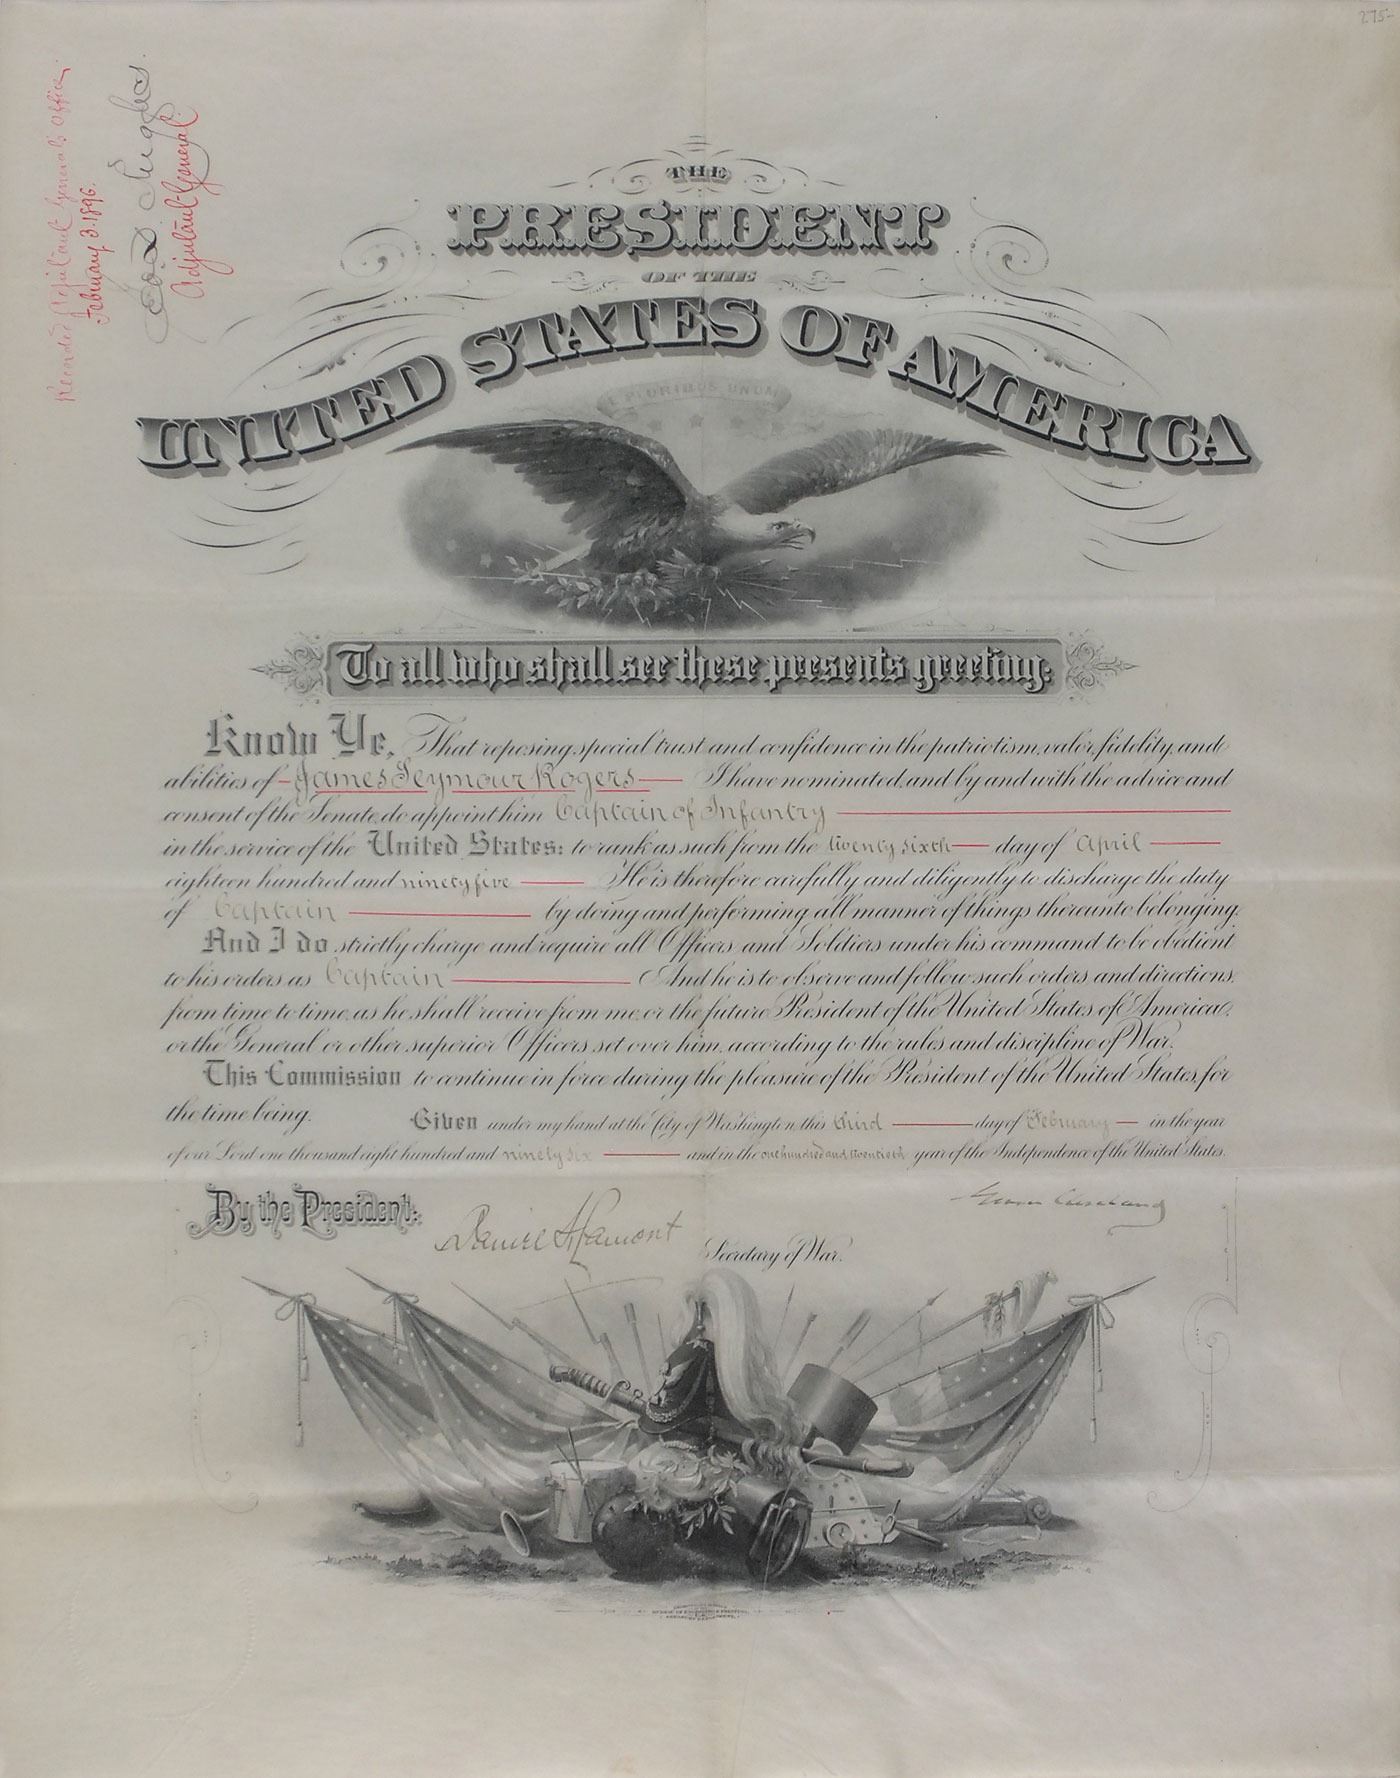 275-
Recorded Adjutant General's Office,
February 3. 1896.
Adjutant General.
THE
PRESIDENT
OF THE
UNITED STATES OF AMERICA
E PLURIBUS UNUM
To all who shall see these presents greeting:
Know Ye, That reposing special trust and confidence in the patriotism, valor, fidelity, and
abilities of James Seymour Rogers I have nominated, and by and with the advice and
consent of the Senate, do appoint him Captain of Infantry
in the service of the United States: to rank as such from the twenty sixth day of April
eighteen hundred and ninety five He is therefore carefully and diligently to discharge the duty
of Captain by doing and performing all manner of things thereunto belonging.
And I do strictly charge and require all Officers and Soldiers under his command to be obedient
to his orders as Captain And he is to observe and follow such orders and directions,
from time to time, as he shall receive from me, or the future President of the United States of America,
or the General or other superior Officers set over him, according to the rules and discipline of War.
This Commission to continue in force during the pleasure of the President of the United States, for
the time being. Given under my hand at the City of Washington, this third day of February in the year
of our Lord one thousand eight hundred and ninety six and in the one hundred and twentieth year of the Independence of the United States.
By the President:
Grover Cleveland
Daniel S Lamont
Secretary of War.